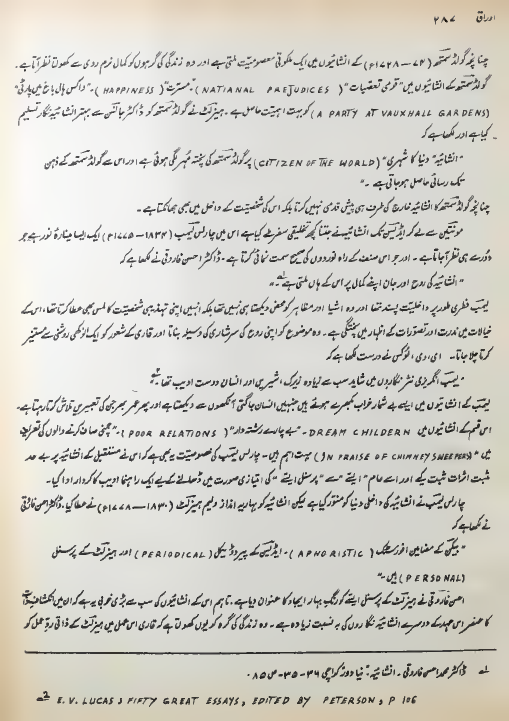 اوراق ۲۸۷
چنانچہ گولڈ سمتھ (۷۴ — ۱۷۲۸ء) کے انشائیوں میں ایک ملکوتی معصومیت ملتی ہے اور وہ زندگی کی گرہوں کو کمال نرم روی سے کھولتا نظر آتا ہے۔
گولڈ سمتھ کے انشائیوں میں "قومی تعصبات" (NATIANAL PREJUDICES)۔ "مسرت" (HAPPINESS)۔ "واکس ہال باغ میں پارٹی"
(A PARTY AT VAUXHALL GARDENS) کو بہت اہمیت حاصل ہے۔ ہیزلٹ نے گولڈ سمتھ کو ڈاکٹر جانسن سے بہتر انشائیہ نگار تسلیم
کیا ہے اور لکھا ہے کہ
"انشائیہ "دنیا کا شہری" (CITIZEN OF THE WORLD) پر گولڈ سمتھ کی پختہ مُہر لگی ہوئی ہے اور اس سے گولڈ سمتھ کے ذہن
تک رسائی حاصل ہو جاتی ہے۔"
چنانچہ گولڈ سمتھ کا انشائیہ خارج کی طرف ہی پیش قدمی نہیں کرتا بلکہ اس کی شخصیت کے داخل میں بھی جھانکتا ہے۔
مونتین سے لے کر ایڈیسن تک انشائیہ نے جتنا کچھ تخلیقی سفر طے کیا ہے اس میں چارلس لیمب (۱۸۳۴ — ۱۷۷۵ء) ایک ایسا مینارۂ نور ہے جو
دُور سے ہی نظر آ جاتا ہے۔ اور جو اس صنف کے راہ نوردوں کی صحیح سمت نمائی کرتا ہے۔ ڈاکٹر احسن فاروقی نے لکھا ہے کہ
"انشائیہ کی روح اور جان اپنے کمال پر اس کے ہاں ملتی ہے۔" ؎۱
لیمب فطری طور پر داخلیت پسند تھا اور وہ اشیا اور مظاہر کو محض دیکھتا ہی نہیں تھا بلکہ انہیں اپنی تہذیبی شخصیت کا لمس بھی عطا کرتا تھا، اس کے
خیالات میں ندرت اور تصورات کے اظہار میں پختگی ہے۔ وہ موضوع کو اپنی روح کی سرشاری کی وسیلہ بناتا اور قاری کے شعور کو ایک انوکھی روشنی سے مستنیر
کرتا چلا جاتا۔ ای، وی، لوکس نے درست لکھا ہے کہ
"لیمب انگریزی نثر نگاروں میں شاید سب سے زیادہ زیرک، شیریں اور انسان دوست ادیب تھا۔" ؎۲
لیمب کے انشائیوں میں ایسے بے شمار خواب بکھرے ہوئے ہیں جنہیں انسان جاگتی آنکھوں سے دیکھتا ہے اور پھر عمر بھر جن کی تعبیریں تلاش کرتا رہتا ہے۔
اس قسم کے انشائیوں میں DREAM CHILDERN۔ "بے چارے رشتہ دار" (POOR RELATIONS)۔ "چمنی صاف کرنے والوں کی تعریف
میں" (IN PRAISE OF CHIMNEY SWEEPERS) بہت اہم ہیں۔ چارلس لیمب کی خصوصیت یہ بھی ہے کہ اس نے مستقبل کے انشائیہ پر بے حد
مثبت اثرات ثبت کیے اور اسے عام "ایسے" سے "پرسنل ایسے" کی امتیازی صورت میں ڈھالنے کے لیے ایک راہنما ادیب کا کردار ادا کیا۔
چارلس لیمب نے انشائیہ کی داخلی دنیا کو منور کیا ہے لیکن انشائیہ کو بہاریہ انداز ولیم ہیزلٹ (۱۸۳۰ — ۱۷۷۸ء) نے عطا کیا۔ ڈاکٹر احسن فاروقی
نے لکھا ہے کہ
"بیکن کے مضامین افورسٹک (APHORISTIC)۔ ایڈیسن کے پیروڈیکل (PERIODICAL) اور ہیزلٹ کے پرسنل
(PERSONAL) ہیں۔"
احسن فاروقی نے ہیزلٹ کے پرسنل ایسے کو رنگ بہار ایجاد کا عنوان دیا ہے۔ تاہم اس کے انشائیوں کی سب سے بڑی خوبی یہ ہے کہ ان میں انکشاف ذات
کا عنصر اس عہد کے دوسرے انشائیہ نگاروں کی بہ نسبت زیادہ ہے۔ وہ زندگی کی گرہ کو یوں کھولتا ہے کہ قاری اس عمل میں ہیزلٹ کے ذاتی ردِّ عمل کو
؎۱ ڈاکٹر محمد احسن فاروقی۔ انشائیہ۔ نیا دور کراچی ۳۶ — ۳۵ — ص ۸۵۔
؎۲ E. V. LUCAS: FIFTY GREAT ESSAYS, EDITED BY PETERSON, P 106